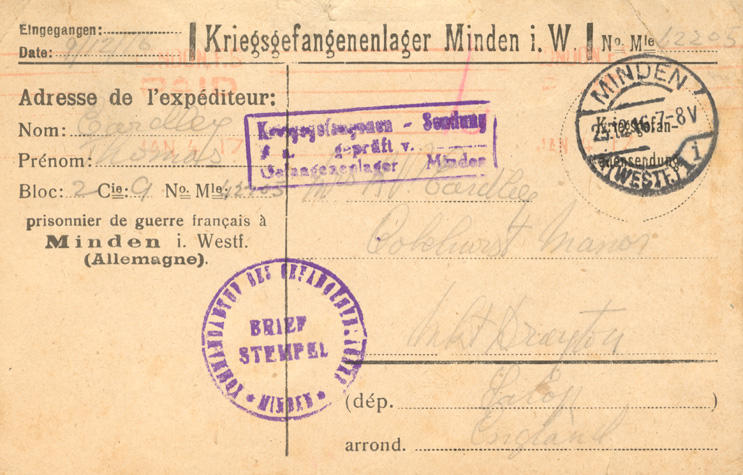 Eingegangen:
Date: 9/12/16
Kriegsgefangenenlager Minden i. W.
No. Mle 42205
Adresse de l'expéditeur:
Nom: Eardley
Prénom: Thomas
Bloc: 2 Cie 9 No. Mle: 42205
prisonnier de guerre français à
Minden i. Westf.
(Allemagne).
Kriegsgefangenen - Sendung
geprüft v.
Gefangenenlager Minden
MINDEN
7-8V
(WESTF.) 1
i
Kriegsgefan-
genensendung
Mrs Eardley
Manor
Mkt Drayton
(dép. Salop
arrond. England
KOMMANDANTUR DES GEFANGENENLAGERS
BRIEF
STEMPEL
* MINDEN *
PAID
JAN 4 17